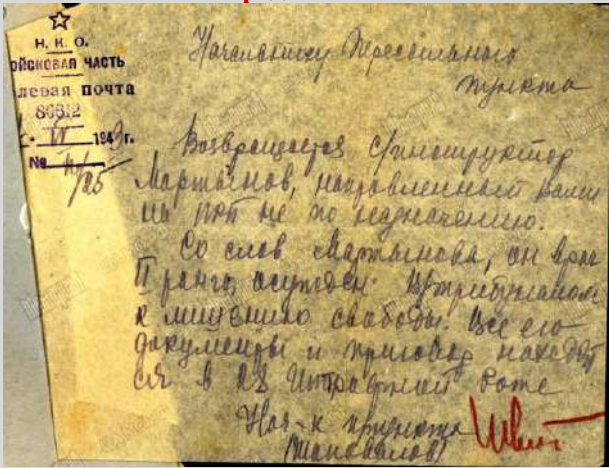 Н. К. О.
ОЙСКОВАЯ ЧАСТЬ
левая почта
86612
VI 1943 г.
№ 4/185
Начальнику Пересыльного
пункта
Возвращается с/инструктор
Мартынов, направленный вами
на ППП не по назначению.
Со слов Мартынова, он
II ранга, осужден В/трибуналом
к лишению свободы. Все его
документы и приговор находят
ся в 28 Штрафной роте
Нач-к пункта
(Шаповалов)